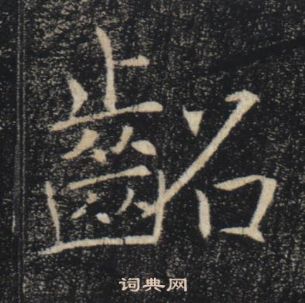 齠
词典网